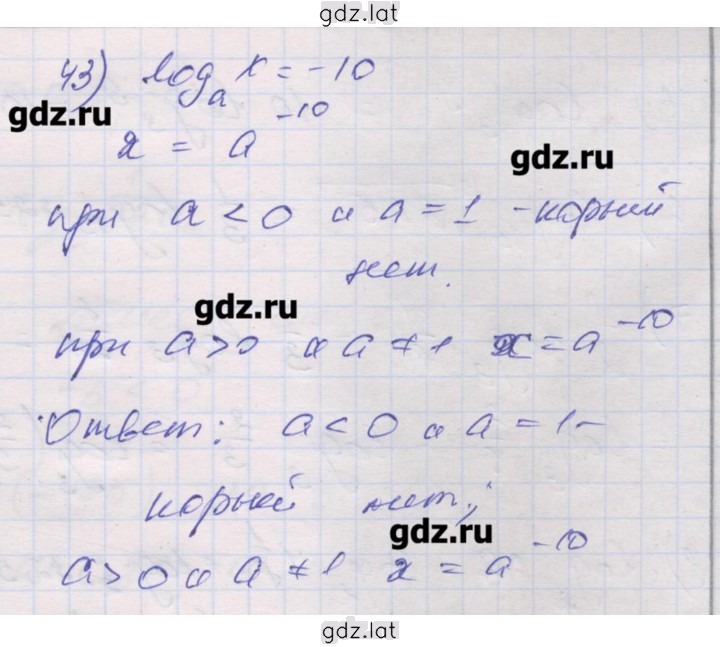 gdz.lat
43) log_a x = -10
gdz.ru
x = a^-10
gdz.ru
при a < 0 и a = 1 - корный
нет.
gdz.ru
при a > 0 и a ≠ 1 x = a^-10
Ответ: a < 0 и a = 1 -
корный нет;
gdz.ru
a > 0 и a ≠ 1 x = a^-10
gdz.lat